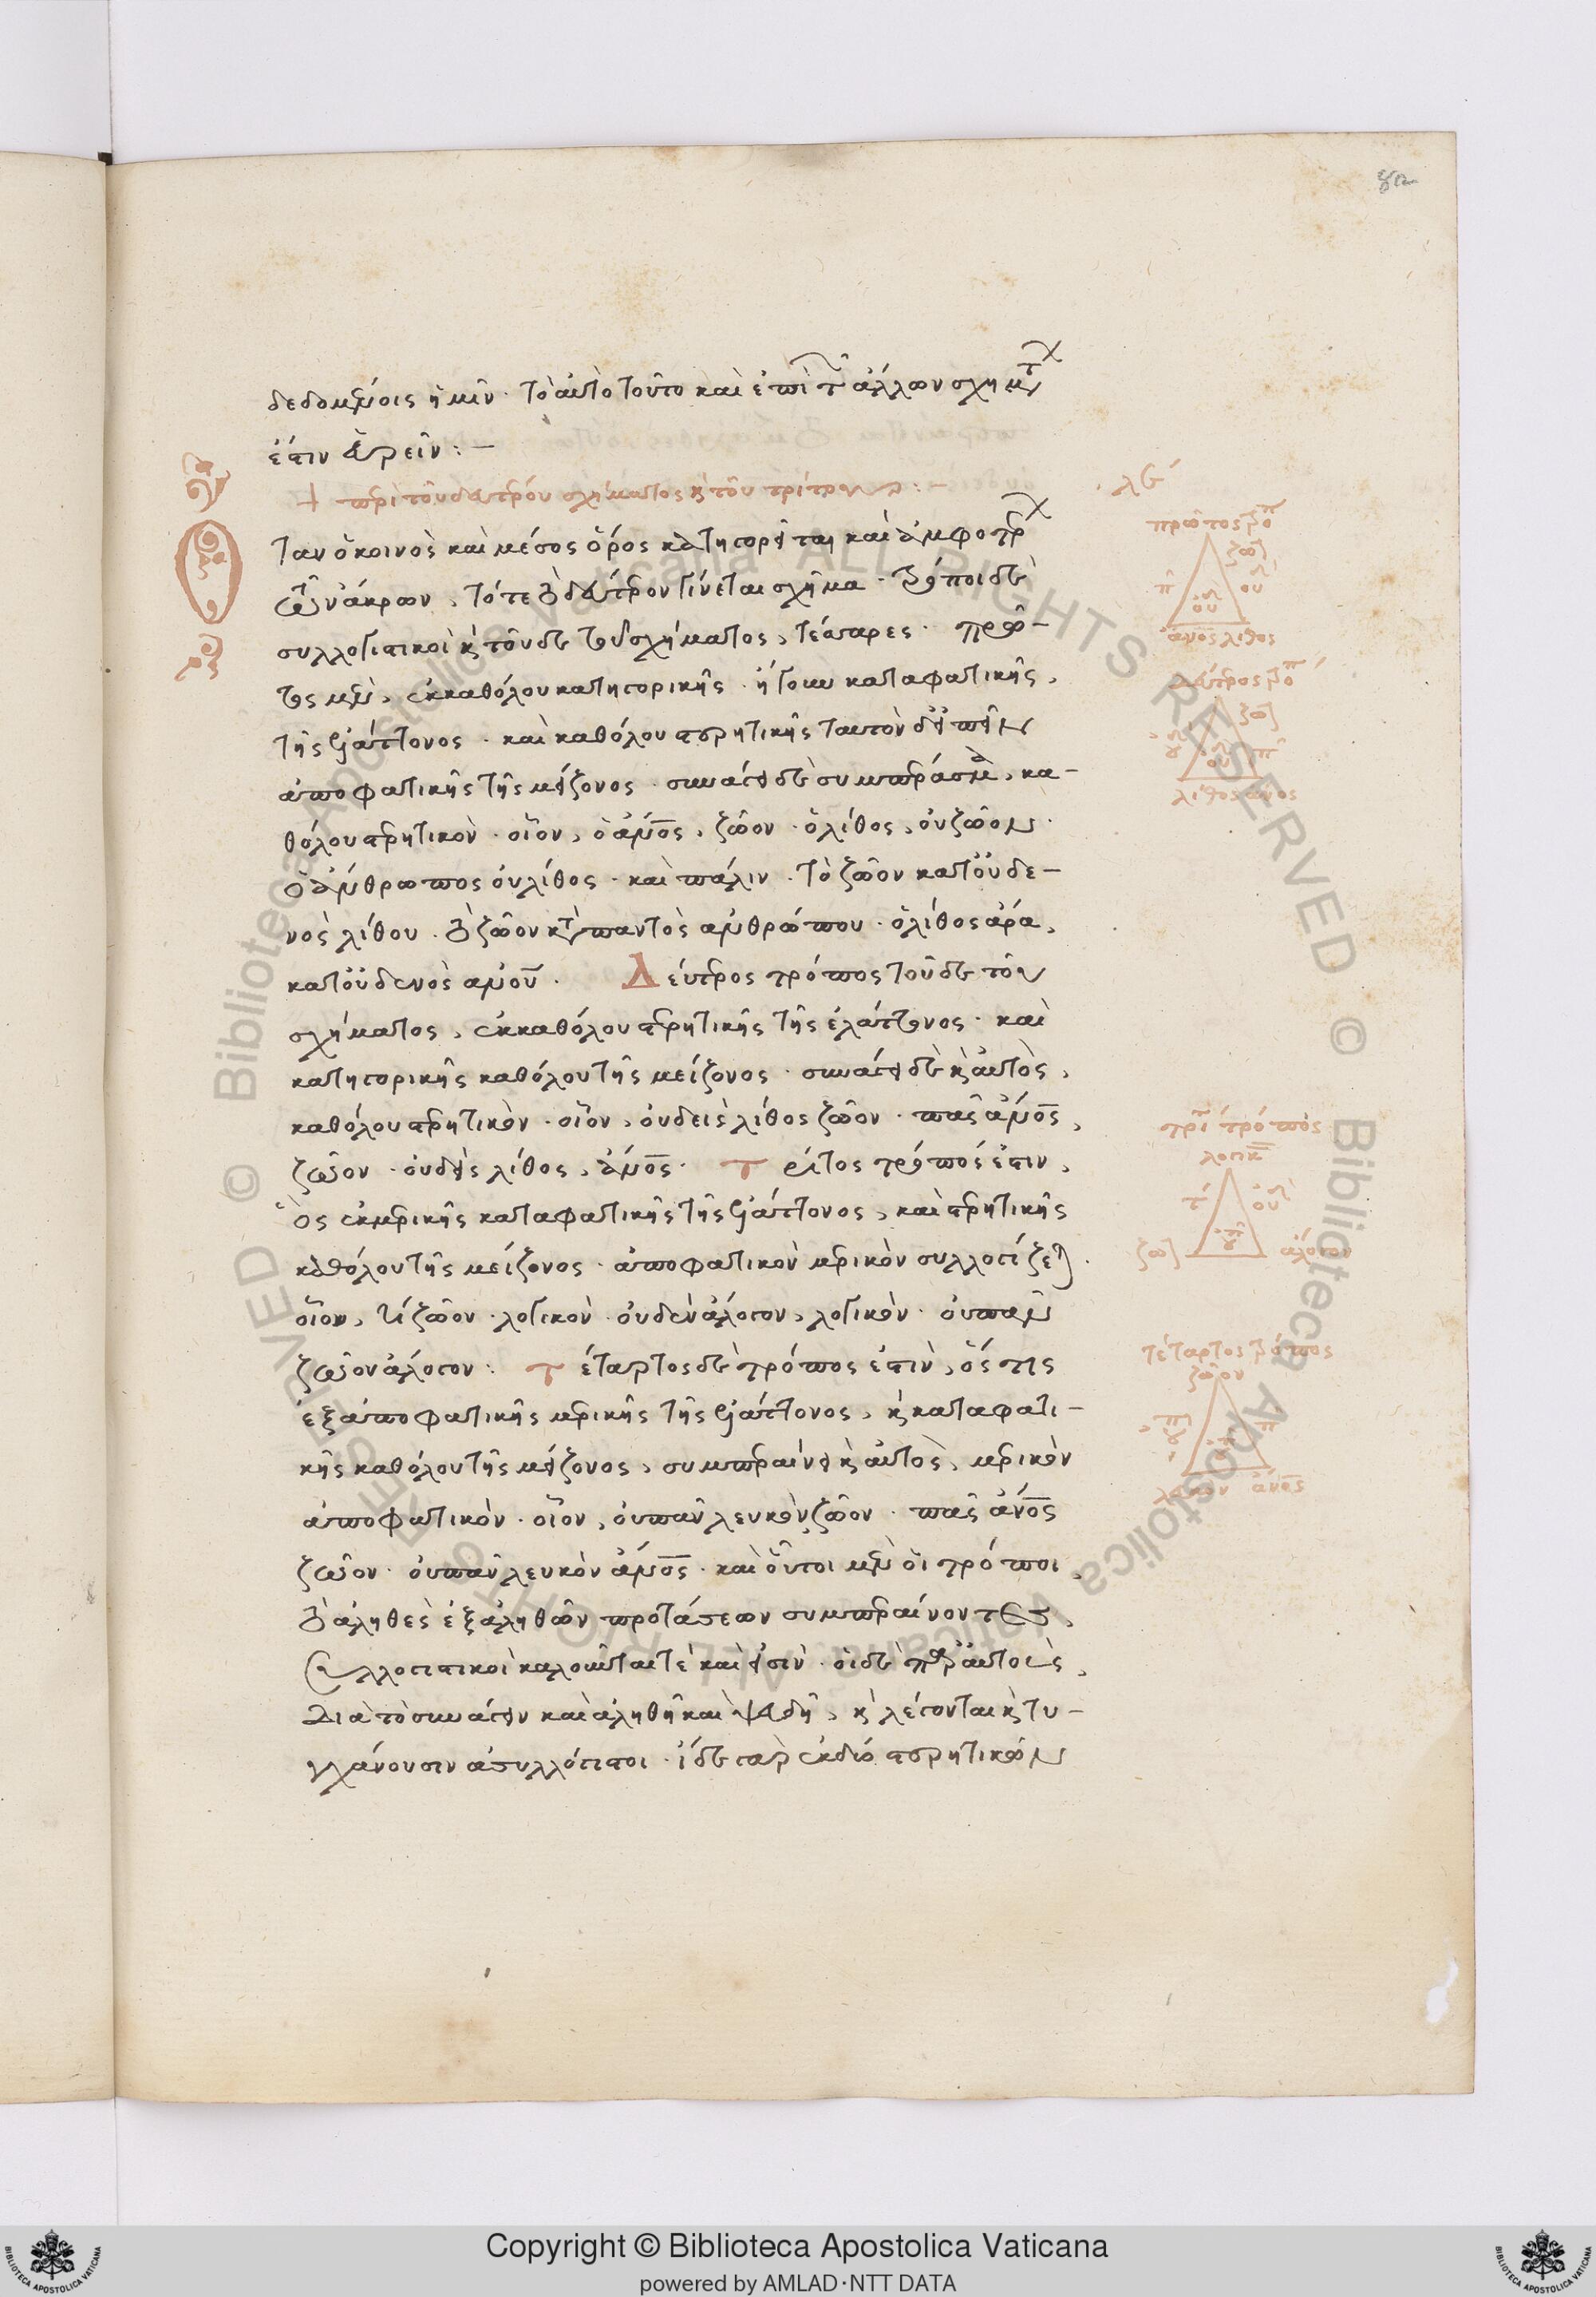 δεδομένοις ἡμῖν· τὸ αὐτὸ τοῦτο καὶ ἐπὶ τῶν ἄλλων σχημάτων
ἐστιν εὑρεῖν :—
+ περὶ τοῦ δευτέρου σχήματος καὶ τοῦ τρίτου :— λβ
Ὅταν ὁ κοινὸς καὶ μέσος ὅρος κατηγορεῖται κατ᾽ ἀμφοτέρων
τῶν ἄκρων, τότε τὸ δεύτερον γίνεται σχῆμα· τρόποι δὲ
συλλογιστικοὶ καὶ τοῦδε τοῦ σχήματος, τέσσαρες· πρῶ-
τος μὲν, ἐκ καθόλου κατηγορικῆς· ἤγουν καταφατικῆς,
τῆς ἐλάττονος· καὶ καθόλου στερητικῆς ταυτὸν δ᾽ εἰπεῖν
ἀποφατικῆς τῆς μείζονος· συνάγει δὲ συμπέρασμα, κα-
θόλου στερητικὸν· οἷον, ὁ ἄνος, ζῶον· ὁ λίθος, οὐ ζῶον·
ὁ ἄνθρωπος οὐ λίθος· καὶ πάλιν· τὸ ζῶον κατ᾽ οὐδε-
νὸς λίθου· τὸ ζῶον κατὰ παντὸς ἀνθρώπου· ὁ λίθος ἄρα,
κατ᾽ οὐδενὸς ἀνου· Δεύτερος τρόπος τοῦδε τοῦ
σχήματος, ἐκ καθόλου στερητικῆς τῆς ἐλάττονος· καὶ
κατηγορικῆς καθόλου τῆς μείζονος· συνάγει δὲ καὶ αὐτὸς,
καθόλου στερητικὸν· οἷον, οὐδεὶς λίθος ζῶον· πᾶς ἄνος,
ζῶον· οὐδεὶς λίθος, ἄνος· Τρίτος τρόπός ἐστιν,
ὃς ἐκ μερικῆς καταφατικῆς τῆς ἐλάττονος, καὶ στερητικῆς
καθόλου τῆς μείζονος· ἀποφατικὸν μερικὸν συλλογίζεται·
οἷον, τί ζῶον· λογικὸν· οὐδὲν ἄλογον, λογικὸν· οὐ πᾶν
ζῶον ἄλογον: Τέταρτος δὲ τρόπος ἐστὶν, ὅστις
ἐξ ἀποφατικῆς μερικῆς τῆς ἐλάττονος, καὶ καταφατι-
κῆς καθόλου τῆς μείζονος, συμπεραίνει καὶ αὐτὸς, μερικὸν
ἀποφατικὸν· οἷον, οὐ πᾶν λευκὸν ζῶον· πᾶς ἄνος
ζῶον· οὐ πᾶν λευκὸν ἄνος· καὶ οὗτοι μὲν οἱ τρόποι,
τὸ ἀληθὲς ἐξ ἀληθῶν προτάσεων συμπεραίνοντες,
συλλογιστικοὶ καλοῦνταί τε καὶ εἰσὶν· οἱ δὲ παρ᾽ αὐτοὺς,
διὰ τὸ συνάγειν καὶ ἀληθῆ καὶ ψευδῆ, καὶ λέγονται καὶ τυ-
γχάνουσιν ἀσυλλόγιστοι· ἴδε γὰρ ἐκ δύο στερητικῶν
πρῶτος τρόπ
ζῶ
π οὐ
οὐ
ἄνος λίθος
δεύτερος τρόπ
ζῶ
οὐ π
οὐ
λίθος ἄνος
τρί τρόπος
λογικ
τί οὐ
ζῶ ἄλογον
τέταρτος τρόπος
ζῶον
λευκον ἄνος
Copyright © Biblioteca Apostolica Vaticana
powered by AMLAD·NTT DATA